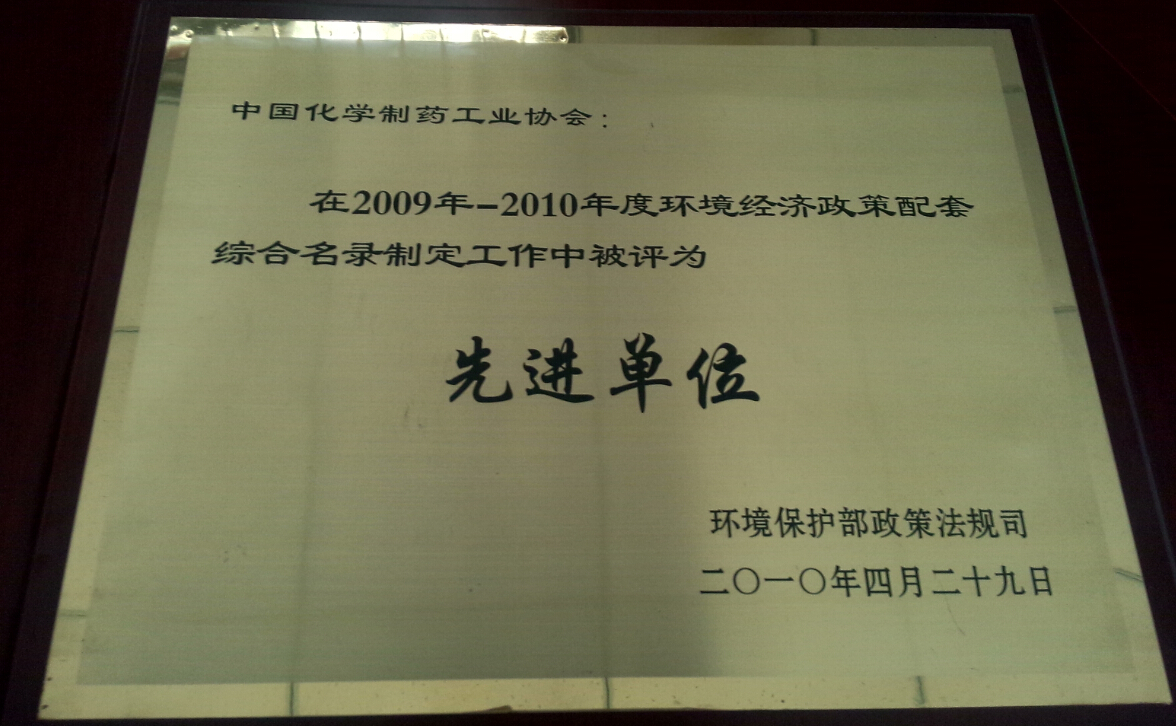 中国化学制药工业协会：
在2009年-2010年度环境经济政策配套
综合名录制定工作中被评为
先进单位
环境保护部政策法规司
二〇一〇年四月二十九日